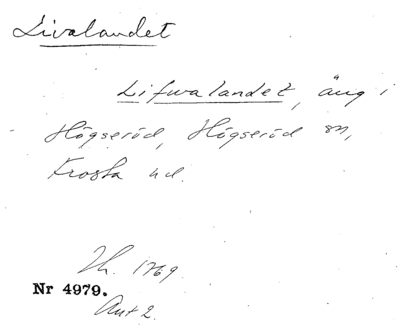 Livalandet
Lifvalandet, äng i
Högseröd, Högseröd sn,
Frosta hd.
Lh. 1769
Nr 4979.
Akt 2.